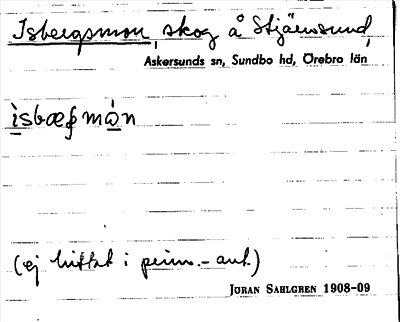 Isbergsmon, skog å Stjärnsund,
Askersunds sn, Sundbo hd, Örebro län
ìsbæʂmò̱n
(ej hittat i prim.-ant.)
JÖRAN SAHLGREN 1908-09